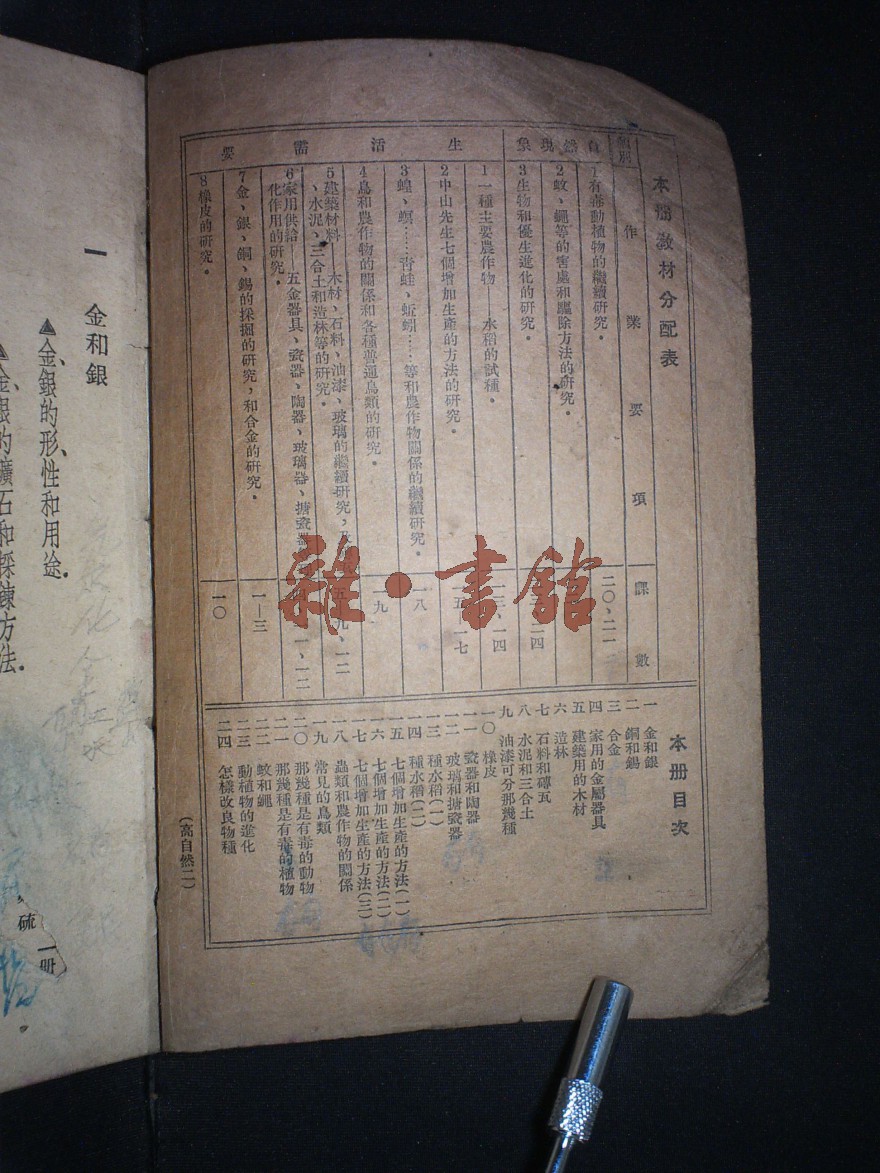 本册教材分配表
類別
作業要項
課數
自然現象
1有毒動植物的繼續研究。
二〇、二一
2蚊、蠅等的害處和驅除方法的研究。
3生物和優生進化的研究。
生活需要
1一種主要農作物——水稻的試種。
2中山先生七個增加生產的方法的研究。
3蝗、螟……青蛙、蚯蚓……等和農作物關係的繼續研究。
一八
4鳥和農作物的關係和各種普通鳥類的研究。
一九
5建築材料——木材、石料、油漆、玻璃的繼續研究,及
、水泥、三合土和造林等的研究。
6家用供給——五金器具、瓷器、陶器、玻璃器、搪瓷器
化作用的研究。
7金、銀、銅、錫的採掘的研究,和合金的研究。
一—三
8橡皮的研究。
一〇
本册目次
一 金和銀
二 銅和錫
三 合金
四 家用的金屬器具
五 建築用的木材
六 造林
七 石料和磚瓦
八 水泥和三合土
九 油漆可分那幾種
一〇 橡皮
一一 瓷器和陶器
一二 玻璃和搪瓷器
一三 種水稻(一)
一四 種水稻(二)
一五 七個增加生產的方法(一)
一六 七個增加生產的方法(二)
一七 七個增加生產的方法(三)
一八 蟲類和農作物的關係
一九 常見的鳥類
二〇 那幾種是有毒的動物
二一 那幾種是有毒的植物
二二 蚊和蠅
二三 動植物的進化
二四 怎樣改良物種
(高自然二)
一 金和銀
▲金、銀的形、性和用途。
▲金銀的礦石和採鍊方法。
硫
一册
雜·書館